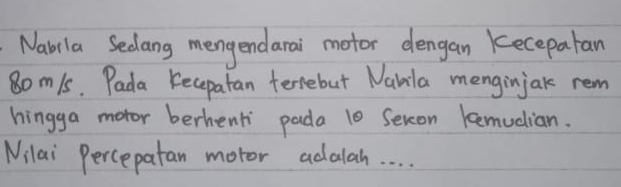 - Nabila Sedang mengendarai motor dengan Kecepatan
80 m/s. Pada Kecepatan tersebut Nabila menginjak rem
hingga motor berhenti pada 10 Sekon kemudian.
Nilai Percepatan motor adalah ....